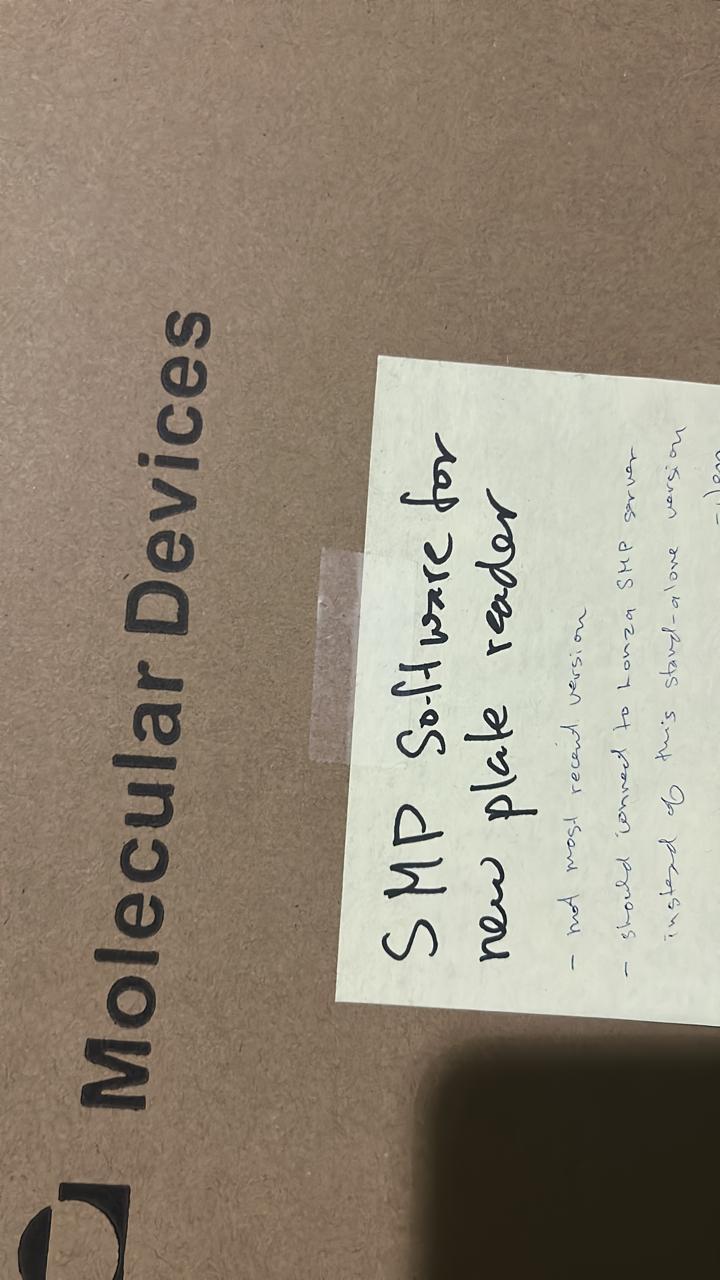 Molecular Devices
SMP Software for
new plate reader
- not most recent version
- should connect to Lonza SMP server
instead of this stand-alone version